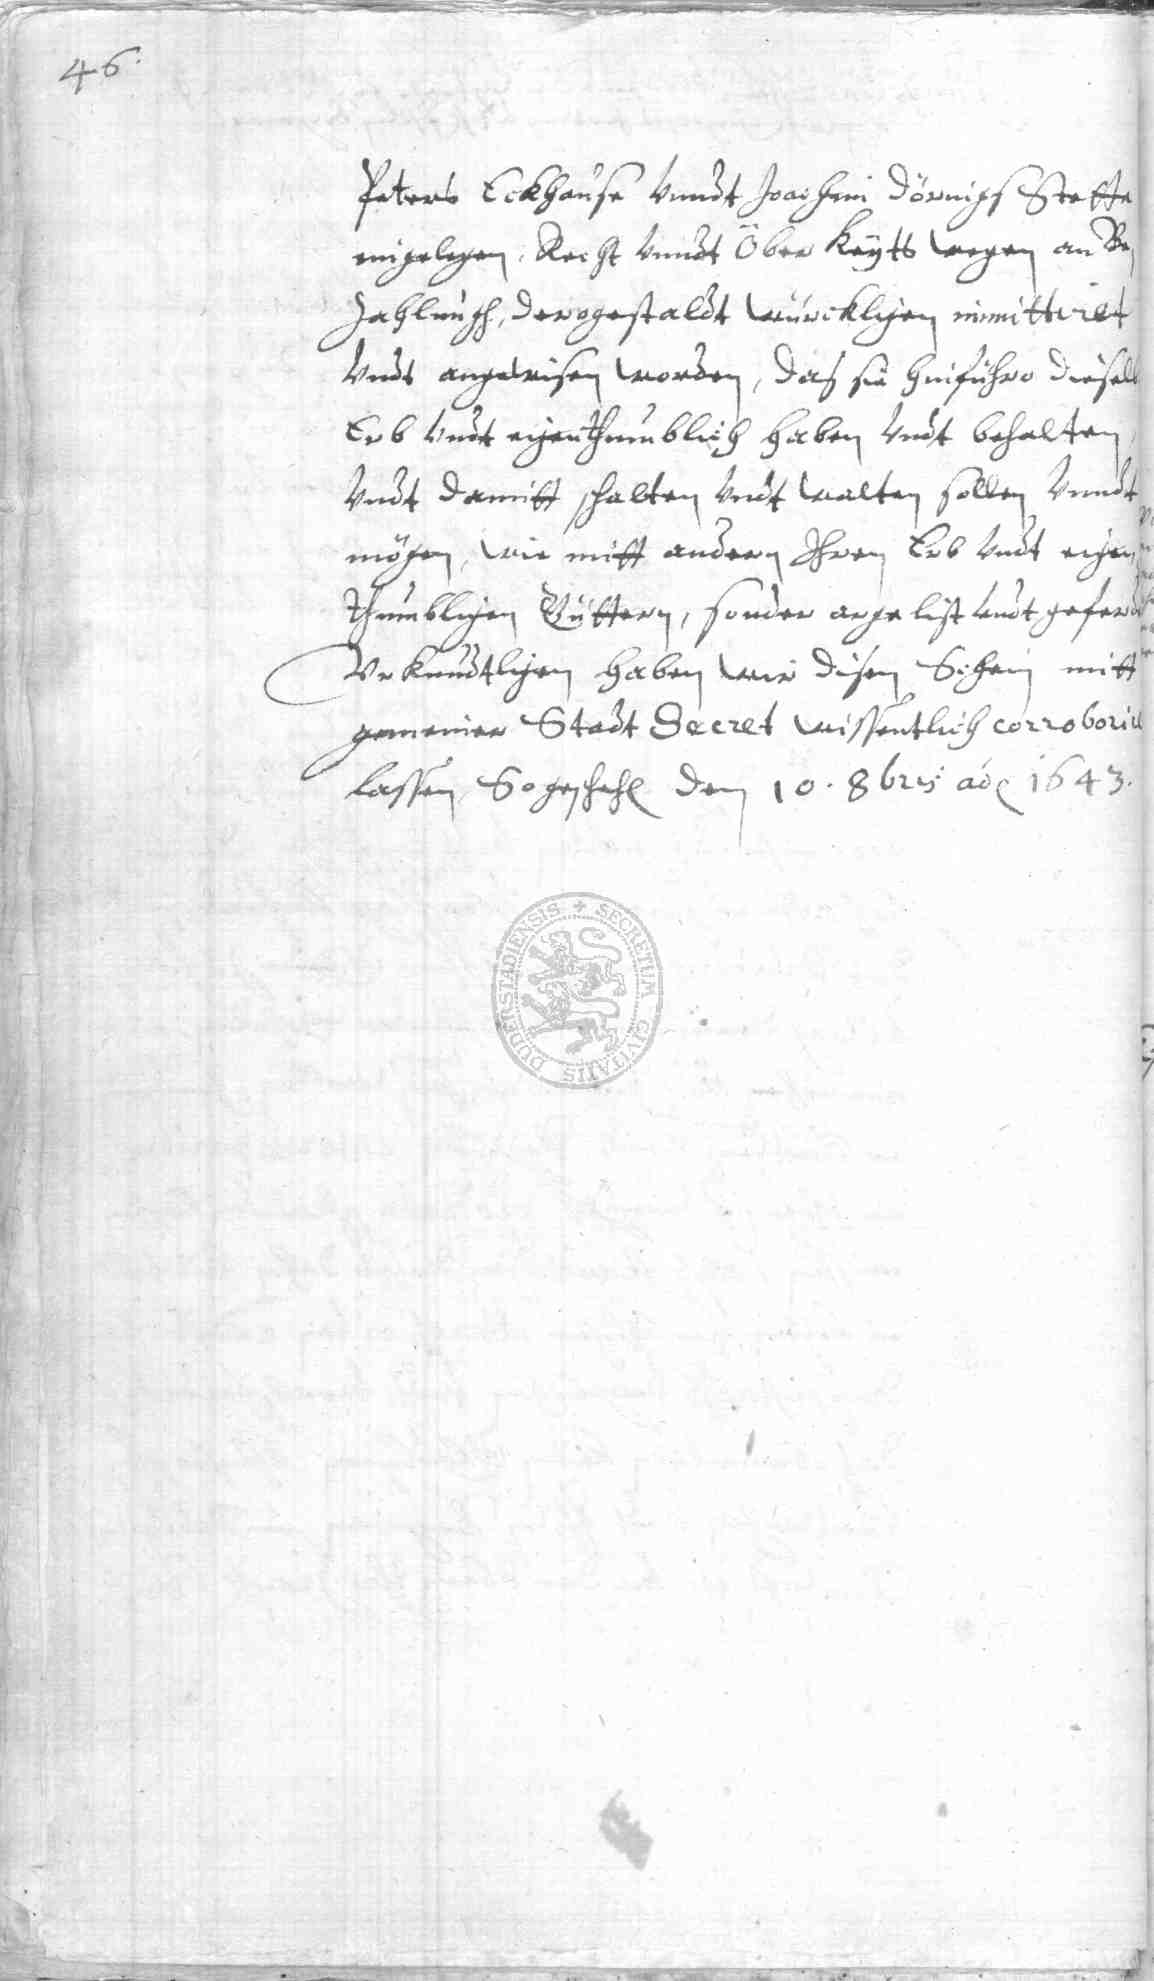 46.
Peters Eckhause Vnndt Joachim Dörings Stette
eingelegen, Recht Vnndt Öber Keytts wegen an Be
Zahlungh, derogestaldt würcklichen immittiret
Vndt angewisen worden, das sie hinführo dieselb
Erb Vndt eigenthumblich haben Vndt behalten
Vndt damitt schalten Vndt walten sollen Vnndt
mögen, wie mitt andern Ihren Erb Vndt eigen
thumblichen Güttern, sonder arge list undt geferde
Vrkundtlichen haben wir disen Schein mitt
gemeiner Stadt Secret wissentlich corroborirn
lassen, So geschehen den 10. 8bris ao 1643.
SECRETUM CIVITATIS DUDERSTADIENSIS